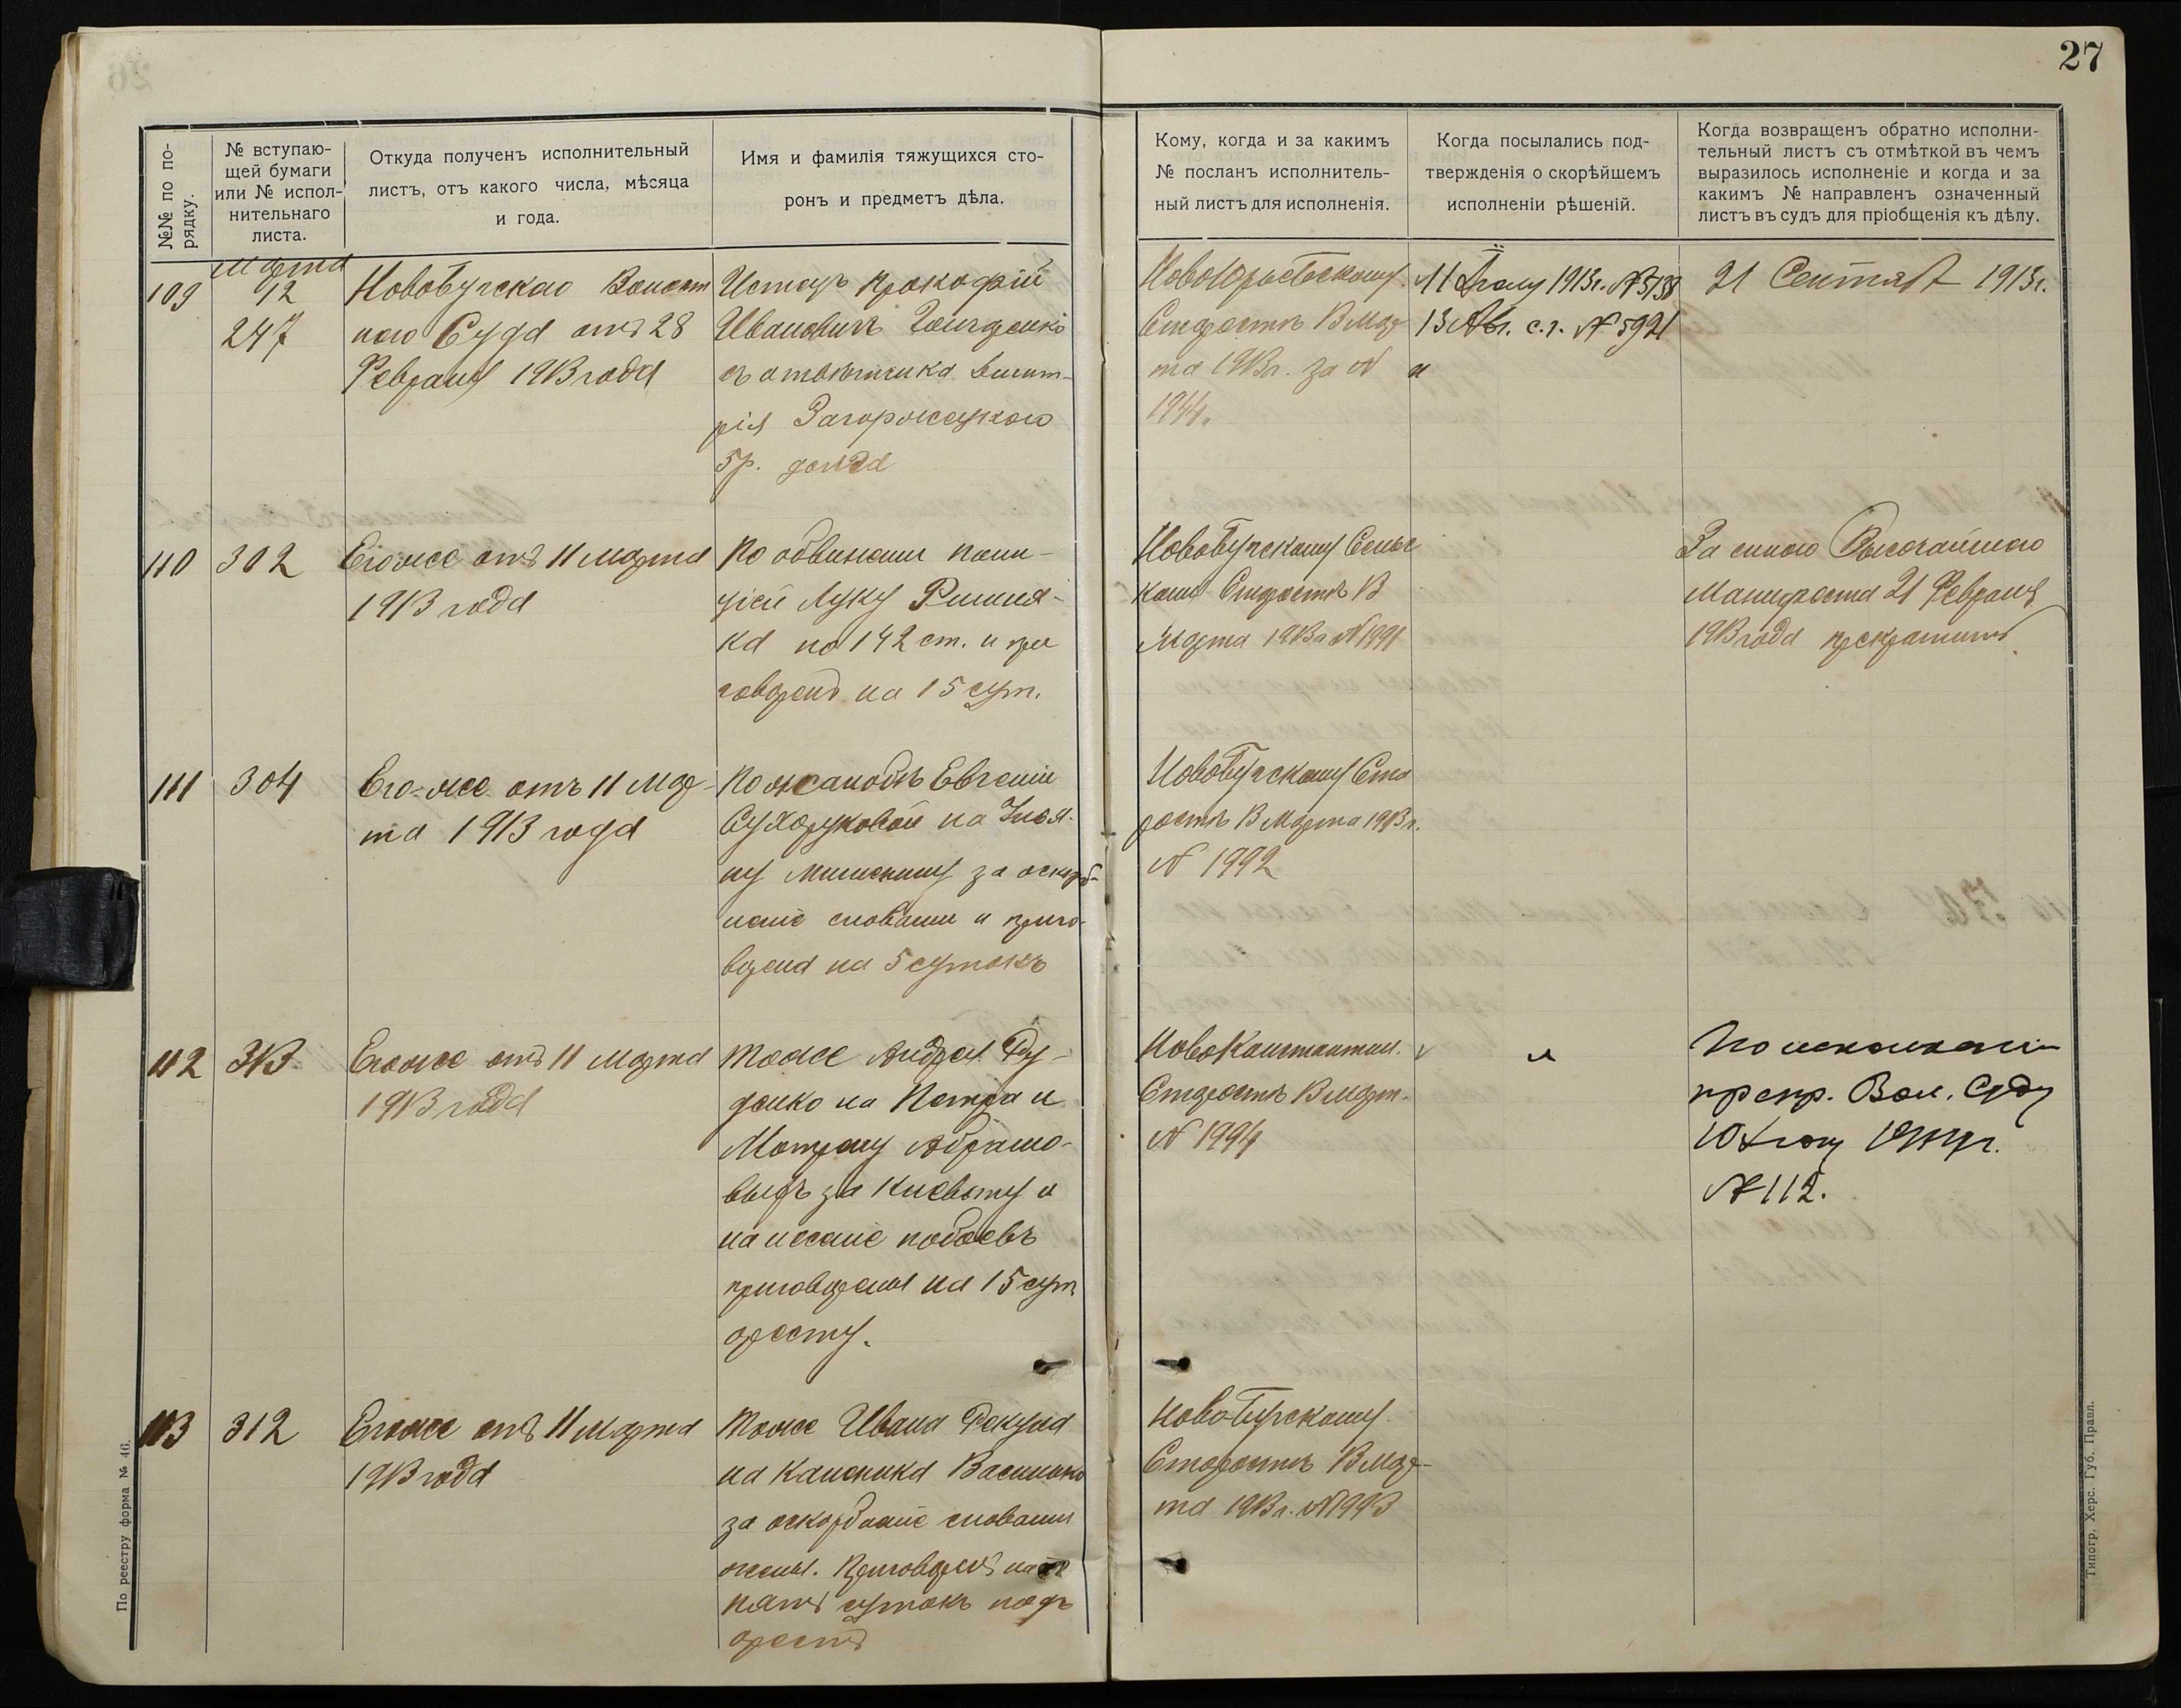 27
№№ по по-
рядку.
№ вступаю-
щей бумаги
или № испол-
нительнаго
листа.
Откуда полученъ исполнительный
листъ, отъ какого числа, мѣсяца
и года.
Имя и фамилія тяжущихся сто-
ронъ и предметъ дѣла.
Кому, когда и за какимъ
№ посланъ исполнитель-
ный листъ для исполненія.
Когда посылались под-
твержденія о скорѣйшемъ
исполненіи рѣшеній.
Когда возвращенъ обратно исполни-
тельный листъ съ отмѣткой въ чемъ
выразилось исполненіе и когда и за
какимъ № направленъ означенный
листъ въ судъ для пріобщенія къ дѣлу.
109
Марта
12
247
Новобугскаго Волост
ного Суда отъ 28
Февраля 1913 года
Истецъ Прокофій
Ивановичъ
съ отвѣтчика
Загорожецкого
5р. долга
Старостѣ 13 Мар
та 1913г. за №
1944.
11 1913г. № 5138
13 Авг. с.г. № 5921
21 1913г.
110
302
Егоже отъ 11 Марта
1913 года
По обвинению поли-
ціей Луку
ка по 142 ст. и при
говоренъ на 15 сут.
Новобугскому Сельс
кому Старостѣ 13
Марта 1913г № 1991
За силою Высочайшаго
Манифеста 21 Февраля
1913 года прекратить
111
304
Его-же отъ 11 Мар-
та 1913 года
По жалобѣ Евгеніи
Сухоруковой на
за оскорб-
леніе словами и приго-
ворена на 5 сутокъ
Новобугскому Ста
ростѣ 13 Марта 1913г.
№ 1992
112
313
Егоже отъ 11 Марта
1913 года
Тоже Андрея
на Петра и
за клевету и
нанесеніе побоевъ
приговорены на 15 сут
аресту.
НовоКонстантин.
Старостѣ 13 Март.
№ 1994
и
Вол. Суду
№ 112.
113
312
Егоже отъ 11 Марта
1913 года
Тоже Ивана
на
за оскорбленіе словами
жены. Приговоренъ на
пять сутокъ подъ
арестъ
Ново-Бугскому
Старостѣ 13 Мар-
та 1913г. № 1993
По реестру форма № 46.
Типогр. Херс. Губ. Правл.